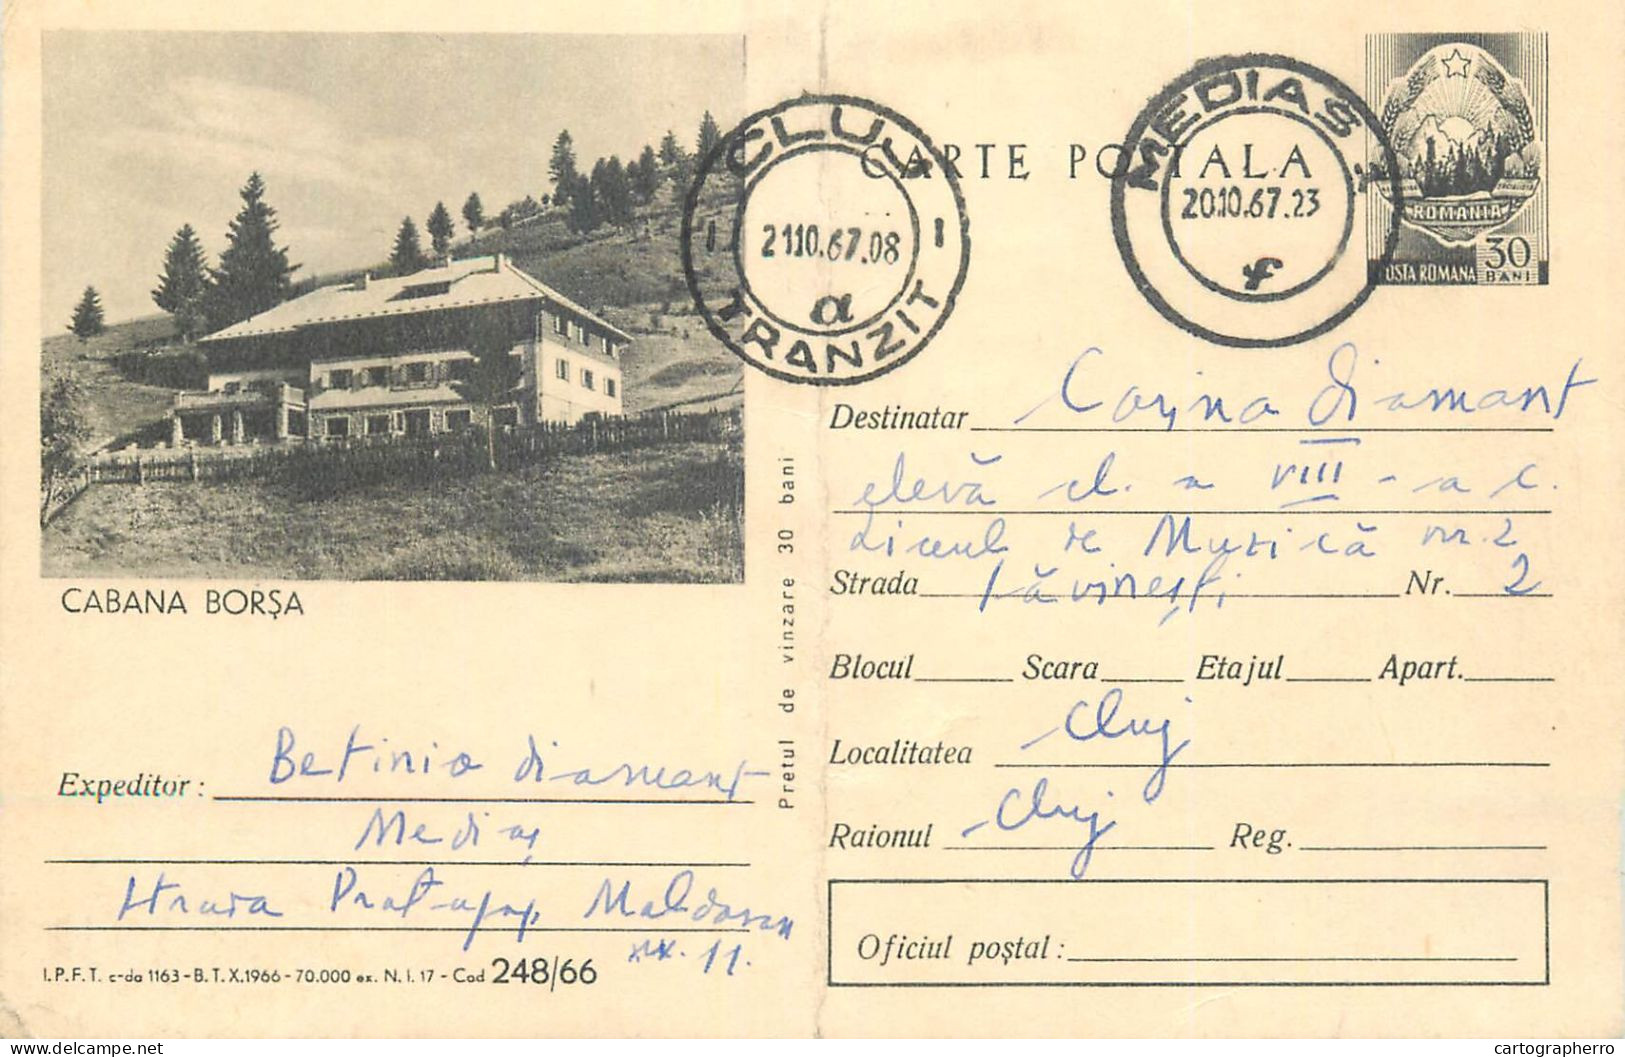 CABANA BORȘA
Expeditor: Betinia Diamant
Mediaș
Strada Protopop Moldovan
nr. 11.
I.P.F.T. c-da 1163-B.T.X.1966-70.000 ex. N.I. 17 - Cod 248/66
Prețul de vinzare 30 bani
CLUJ
21.10.67.08
a
TRANZIT
CARTE POȘTALA
MEDIAS
20.10.67.23
f
ROMANIA
POSTA ROMANA 30 BANI
Destinatar Corina Diamant
elevă cl. a VIII-a C.
Liceul de Muzică nr. 2
Strada Săvinești Nr. 2
Blocul Scara Etajul Apart.
Localitatea Cluj
Raionul Cluj Reg.
Oficiul poștal:
cartographerro